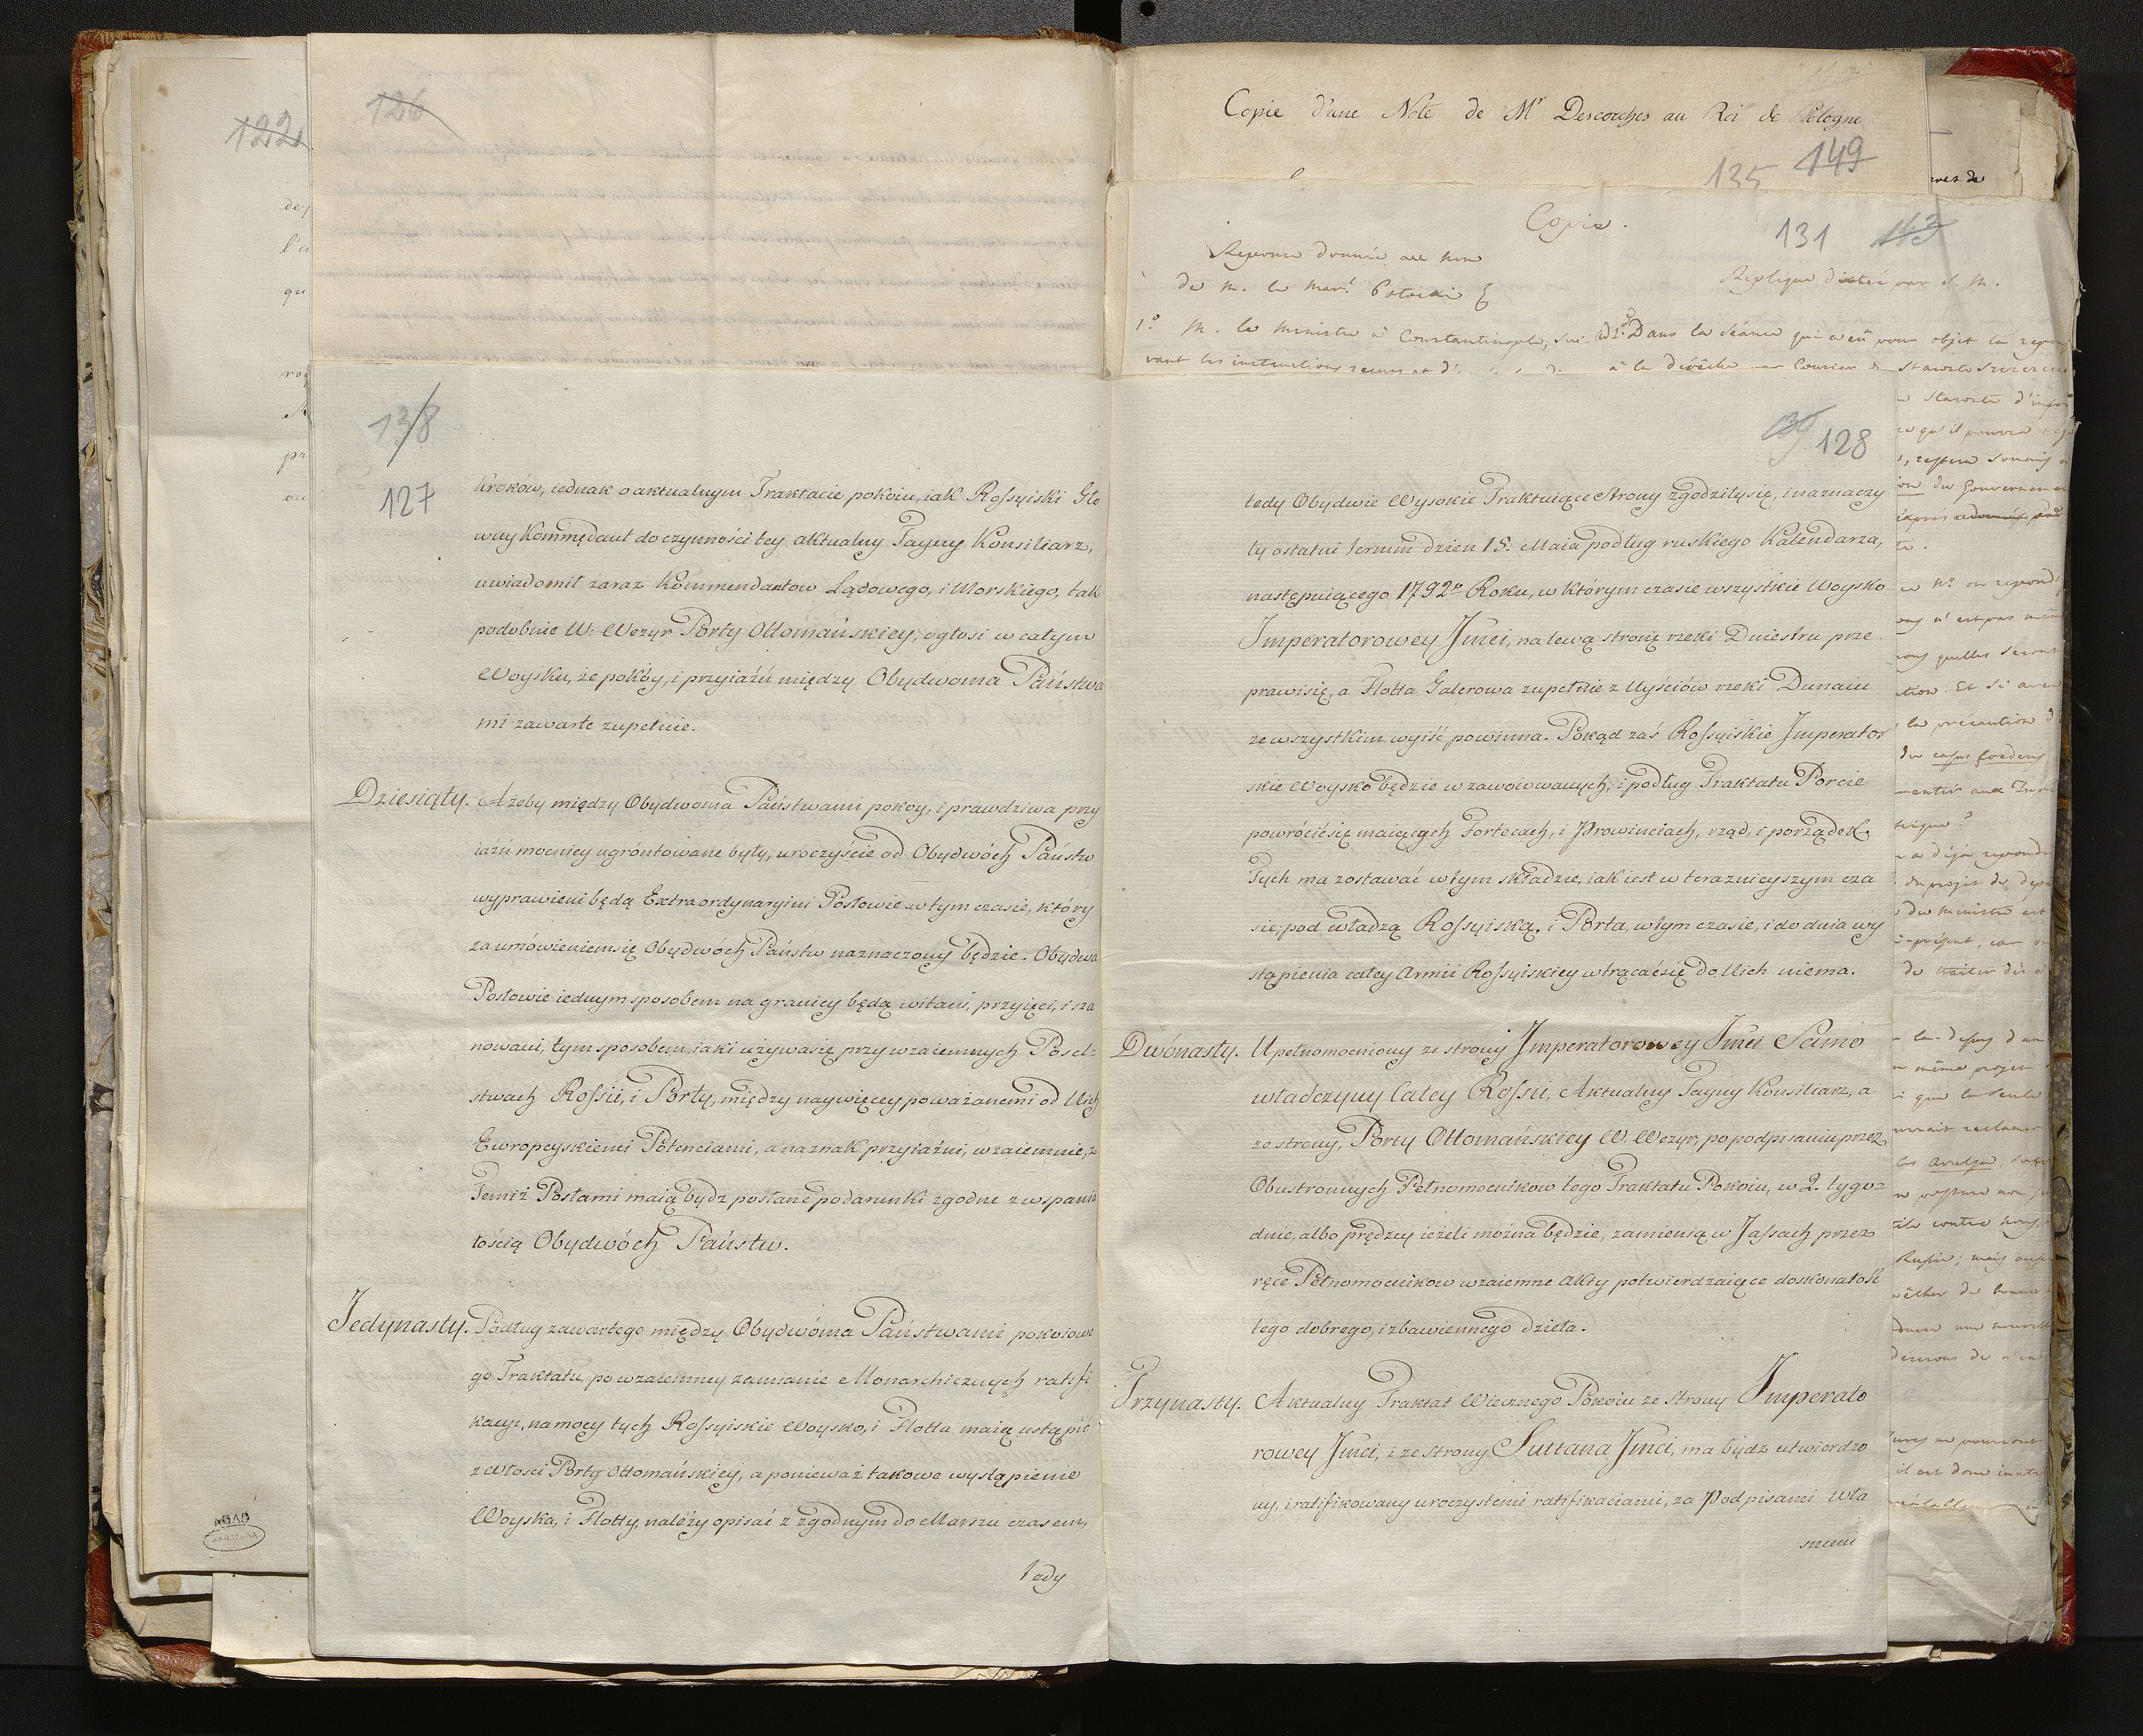 122
126
138
127
kroków, iednak o aktualnym Traktacie pokoiu, iak Rossyiski Glo
wny Kommędant do czynności tey aktualny Tayny Konsiliarz,
uwiadomił zaraz Kommendantow Lądowego, i Morskiego, tak
podobnie W: Wezyr Porty Ottomańskiey, ogłosi w całym
Woysku, że pokóy, i przyiaźń między Obydwoma Państwa
mi zawarte zupełnie.
Dziesiąty. Ażeby między Obydwoma Państwami pokoy, i prawdziwa przy
iaźń mocniey ugróntowane były, uroczyście od Obydwóch Państw
wyprawieni będą Extraordynaryini Posłowie w tym czasie, który
za umówieniem się Obydwóch Państw naznaczony będzie. Obydwa
Posłowie iednym sposobem na granicy będą witani, przyięci, i sza
nowani, tym sposobem, iaki używa się przy wzaiemnych Posel=
stwach Rossii, i Porty, między naywięcey poważanemi od Nich
Ewropeyskiemi Potenciami, a na znak przyiaźni, wzaiemnie, z
Temiż Posłami maią bydź posłane podarunki zgodne z wspania
łością Obydwóch Państw.
Jedynasty. Podług zawartego między Obydwóma Państwami pokoiowe
go Traktatu, po wzaiemney zamianie Monarchicznych ratifi
kacyi, na mocy tych Rossyiskie Woysko, i Flotta maią ustąpić
z Włości Porty Ottomańskiey, a ponieważ takowe wystąpienie
Woyska, i Flotty, należy opisać z zgodnym do Marszu czasem,
tedy
Copie d'une Note de Mr Descorches au Roi de Pologne
135 149
Copie.
131 143
Réponse donnée au nom
de M. le Marl. Potocki
Replique dictée par S. M.
1.° M. le Ministre à Constantinople, sui-
vant les instructions
Dans la séance qui a eû pour objet la
139 128
tedy Obydwie Wysokie Traktuiące Strony zgodziły się, i naznaczy
ły ostatni termin dzien 15. Maia podług ruskiego Kalendarza,
następuiącego 1792o Roku, w którym czasie wszystkie Woysko
Imperatorowey Jmci, na lewą stronę rzeki Dniestru prze
prawi się, a Flotta Galerowa zupełnie z Uyściów rzeki Dunaiu
ze wszystkim wyiść powinna. Pokąd zaś Rossyiskie Imperator
skie Woysko będzie w zawoiowanych, i podług Traktatu Porcie
powrócić się maiących Fortecach, i Prowinciach, rząd, i porządek
Tych ma zostawać w tym składzie, iak iest w teraznieyszym cza
sie, pod władzą Rossyiską, i Porta, w tym czasie, i do dnia wy
stąpienia całey Armii Rossyiskiey wtrącać się do Nich niema.
Dwónasty. Upełnomocniony ze strony Imperatorowey Jmci Samo
władczyny Całey Rossii, Aktualny Tayny Konsiliarz, a
ze strony, Porty Ottomańskiey W. Wezyr, po podpisaniu przez
Obustronnych Pełnomocnikow tego Traktatu Pokoiu, w 2. tygo=
dnie, albo prędzey ieżeli można będzie, zamienią w Jassach przez
ręce Pełnomocnikow wzaiemne akty potwierdzaiące doskonałość
tego dobrego, i zbawiennego dzieła.
Trzynasty. Aktualny Traktat Wiecznego Pokoiu ze strony Imperato
rowey Jmci, i ze strony Sułtana Jmci, ma bydz utwierdzo
ny, i ratifikowany uroczystemi ratifikaciami, za Podpisami Wła
snemi